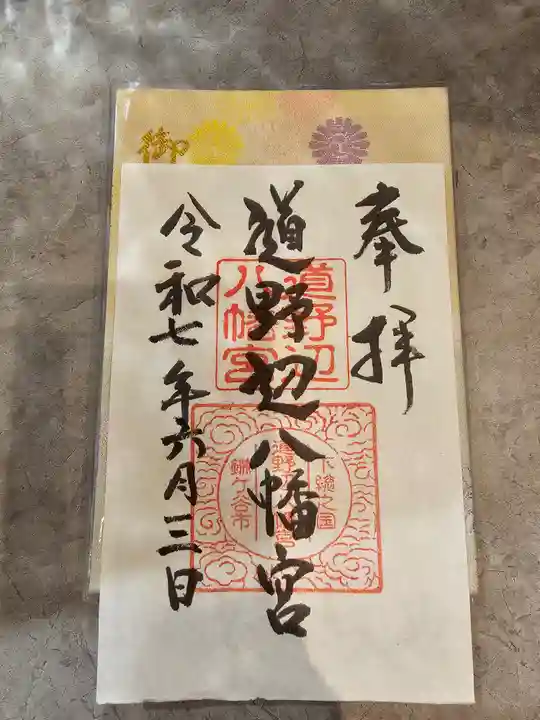 奉拝
道野辺八幡宮
令和七年六月三日
道野辺
八幡宮
下総之国
鎌ケ谷市
御